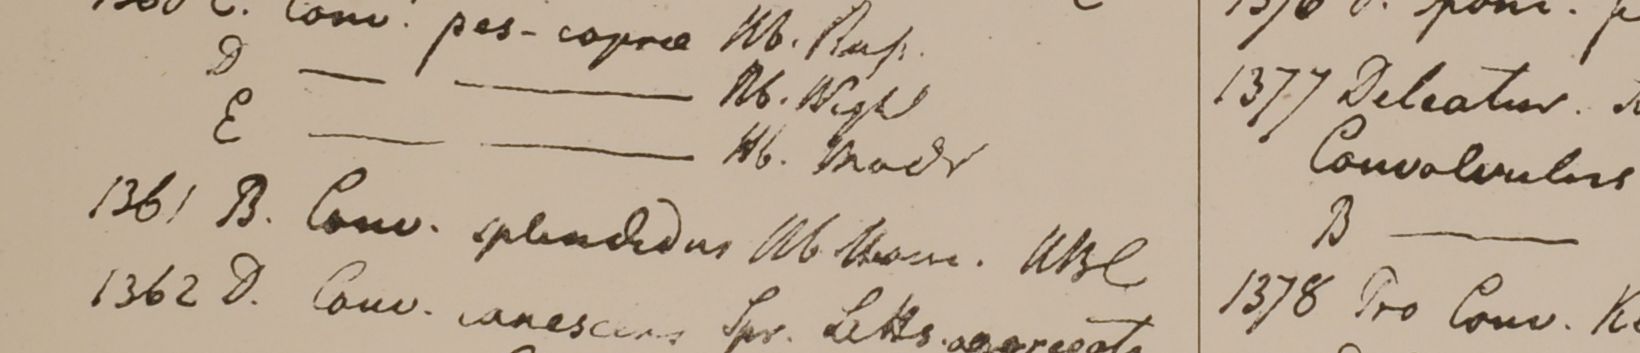 1360 C. Conv. pes-caprae Hb. Rup.
D — — Hb. Wight
E — — Hb. Madr
1361 B. Conv. splendidus Hb Hb
1362 D. Conv. canescens Spr. Letts. aggregata
1376
1377 Deleatur.
Convolvulus
B —
1378 Pro Conv.